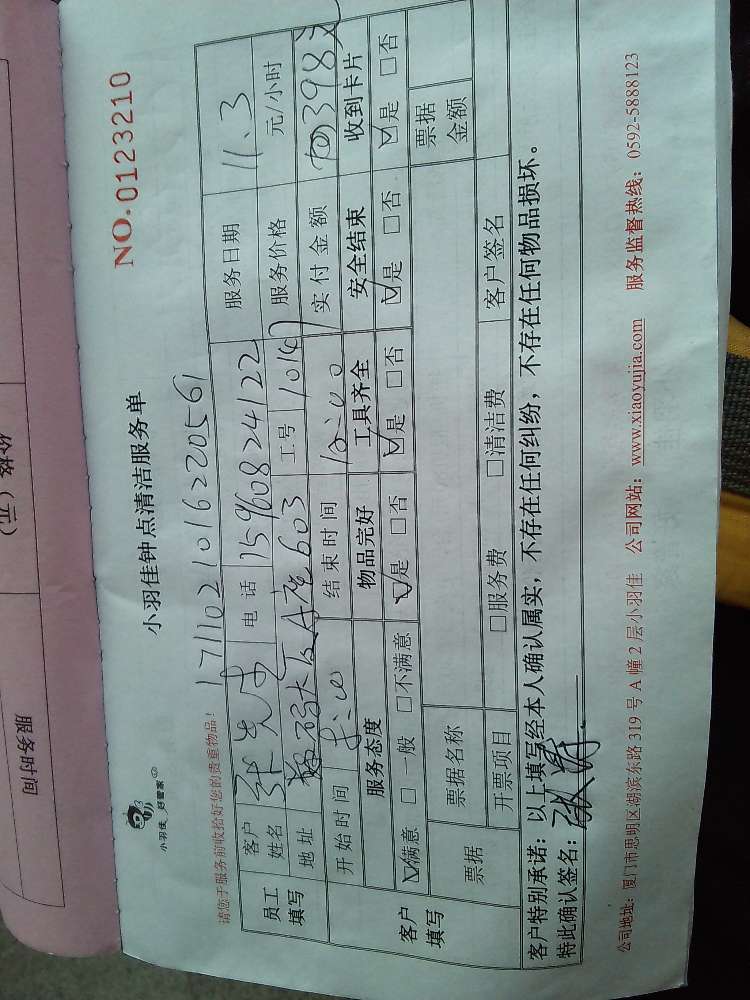 价格（元）
服务时间
NO.0123210
小羽佳钟点清洁服务单
小羽佳 好管家
请您于服务前收拾好您的贵重物品！
171102101622056
员工填写
客户姓名 张先生 电话 15960824122 服务日期 11.3
地址 A座603 工号 服务价格 元/小时
开始时间 结束时间 实付金额 398
客户填写
服务态度 物品完好 工具齐全 安全结束 收到卡片
☑满意 □一般 □不满意 ☑是 □否 ☑是 □否 ☑是 □否 ☑是 □否
票据 票据名称 票据金额
开票项目 □服务费 □清洁费 客户签名
客户特别承诺：以上填写经本人确认属实，不存在任何纠纷，不存在任何物品损坏。
特此确认签名：
公司地址：厦门市思明区湖滨东路 319 号 A 幢 2 层小羽佳 公司网站：www.xiaoyujia.com 服务监督热线：0592-5888123